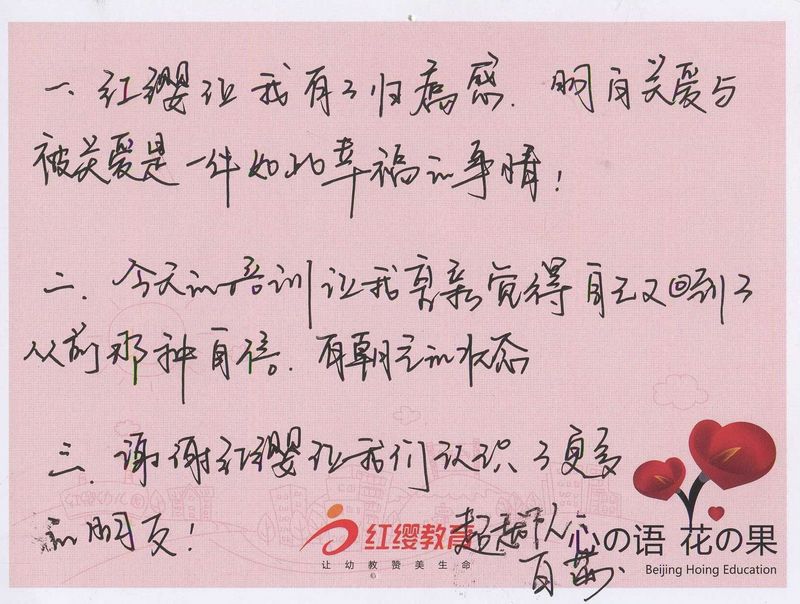 一、红缨让我有了归属感,明白关爱与
被关爱是一件如此幸福的事情!
二、今天的培训让我重新觉得自己又回到了
从前那种自信、有朝气的状态
三、谢谢红缨让我们认识了更多
的朋友!
红缨教育
让幼教赞美生命
心の语 花の果
Beijing Hoing Education